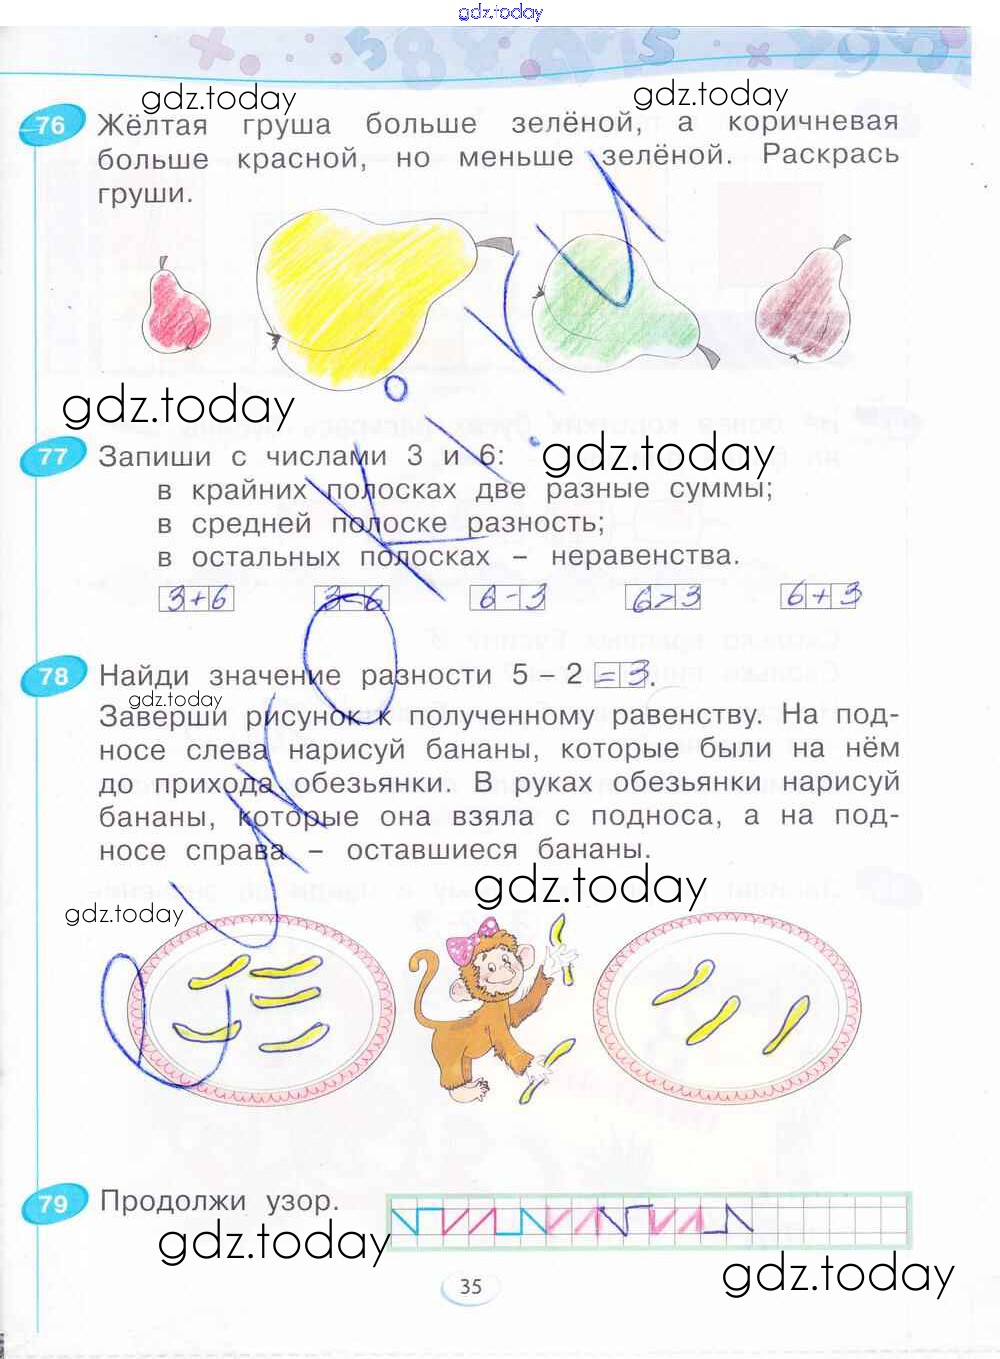 gdz.today
gdz.today
gdz.today
76 Жёлтая груша больше зелёной, а коричневая
больше красной, но меньше зелёной. Раскрась
груши.
gdz.today
77 Запиши с числами 3 и 6:
gdz.today
в крайних полосках две разные суммы;
в средней полоске разность;
в остальных полосках – неравенства.
3+6 3<6 6-3 6>3 6+3
78 Найди значение разности 5 – 2 =3.
gdz.today
Заверши рисунок к полученному равенству. На под-
носе слева нарисуй бананы, которые были на нём
до прихода обезьянки. В руках обезьянки нарисуй
бананы, которые она взяла с подноса, а на под-
носе справа – оставшиеся бананы.
gdz.today
gdz.today
79 Продолжи узор.
gdz.today
gdz.today
35